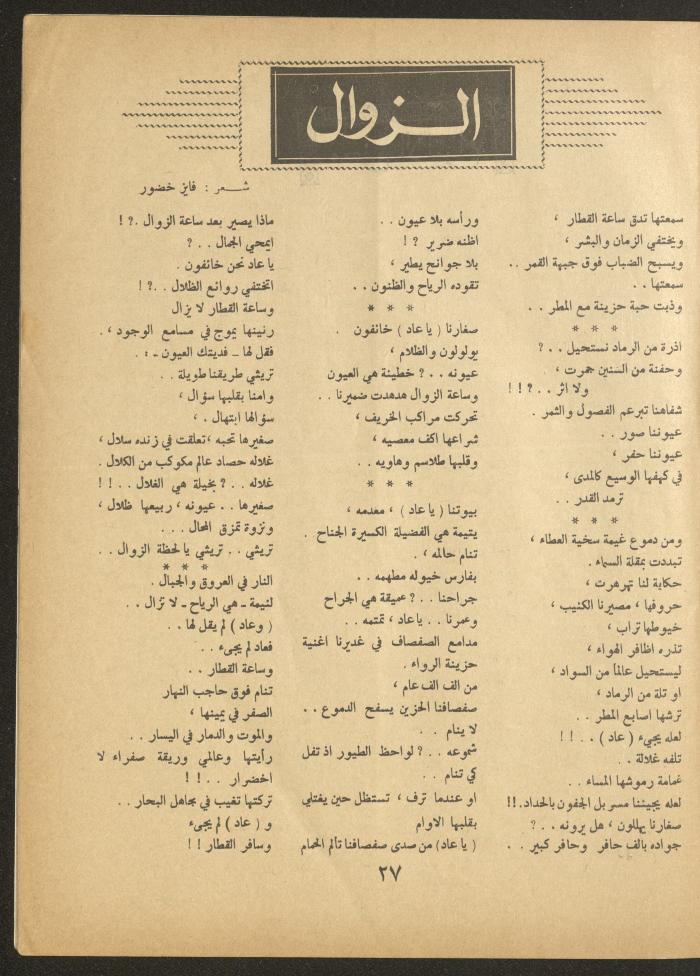 الزوال
شعر : فايز خضور
سمعتها تدق ساعة القطار ،
ويختفي الزمان والبشر ،
ويسبح الضباب فوق جبهة القمر . .
سمعتها . .
وذبت حبة حزينة مع المطر . .
* * *
اذرة من الرماد نستحيل . . ؟
وحفنة من السنين جمرت ،
ولا اثر . . ؟ ! !
شفاهنا تبرعم الفصول والثمر .
عيوننا صور . .
عيوننا حفر ،
في كهفها الوسيع كالمدى ،
ترمد القدر . .
* * *
ومن دموع غيمة سخية العطاء ،
تبددت بمقلة السماء .
حكاية لنا تهرهرت ،
حروفها ، مصيرنا الكئيب ،
خيوطها تراب ،
تذره اظافر الهواء ،
ليستحيل عالماً من السواد ،
او تلة من الرماد ،
ترشها اصابع المطر . .
لعله يجيء ( عاد ) . . ! !
تلفه غلالة . .
غمامة رموشها المساء . .
لعله يجيئنا مسربل الجفون بالحداد. !!
صغارنا يهللون ، هل يرونه . . ؟
جواده بالف حافر وحافر كبير . .
ورأسه بلا عيون . .
اظنه ضرير ? !
بلا جوانح يطير ،
تقوده الرياح والظنون . .
* * *
صغارنا ( يا عاد ) خائفون .
يولولون والظلام ،
عيونه . . ؟ خطيئة هي العيون
وساعة الزوال هدهدت ضميرنا . .
تحركت مراكب الخريف ،
شراعها اكف معصيه ،
وقلبها طلاسم وهاويه . .
* * *
بيوتنا ( يا عاد ) ، معدمه ،
يتيمة هي الفضيلة الكسيرة الجناح .
تنام حالمه ، .
بفارس خيوله مطهمه . .
جراحنا . . ؟ عميقة هي الجراح
وعمرنا . . يا عاد ، تمتمه . .
مدامع الصفصاف في غديرنا اغنية
حزينة الرواء .
من الف الف عام ،
صفصافنا الحزين يسفح الدموع . .
لا ينام . .
شموعه . . ؟ لواحظ الطيور اذ تفل
كي تنام . .
او عندما ترف ، تستظل حين يغتلي
بقلبها الاوام
( يا عاد) من صدى صفصافنا تألم الحمام
ماذا يصير بعد ساعة الزوال .؟ !
ايمحي الجمال . . ؟
يا عاد نحن خائفون .
اتختفي روائع الظلال . .؟ !
وساعة القطار لا يزال
رنينها يموج في مسامع الوجود ، .
فقل لها ــ فديتك العيون ــ : .
تريثي طريقنا طويلة . .
وامنا بقلبها سؤال ،
سؤالها ابتهال . ،
صغيرها تحبه ، تعلقت في زنده سلال ،
غلاله حصاد عالم مكوكب من الكلال .
غلاله . . ؟ بخيلة هي الغلال . . ! !
صغيرها . . عيونه ، ربيعها ظلال ،
ونزوة تمزق المحال . . .
تريثي . . تريثي يا لحظة الزوال . .
* * *
النار في العروق والجبال .
لئيمة ـ هي الرياح ـ لا تزال . .
( وعاد ) لم يقل لها . .
فعاد لم يجيء . .
وساعة القطار . .
تنام فوق حاجب النهار
الصفر في يمينها ،
والموت والدمار في اليسار . .
رأيتها وعالمي وريقة صفراء لا
اخضرار . . ! !
تركتها تغيب في مجاهل البحار . .
و ( عاد ) لم يجيء
وسافر القطار ! !
٢٧